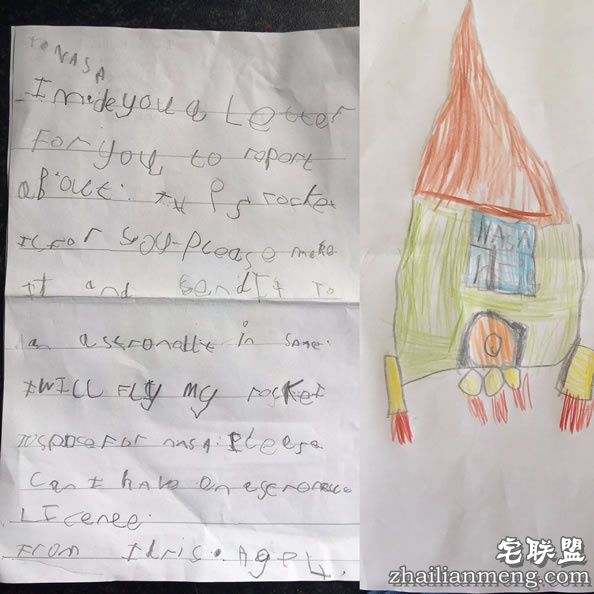 to NASA
I made you a Letter
For you to report
about. it Ps rocket
is for you. please make
it and send it to
an assronallt in some.
I WILL FLY my rocket
to space For nasa. Please
Can I have an
LIcence.
From Idris. Age 4.
NASA
宅联盟
zhailianmeng.com